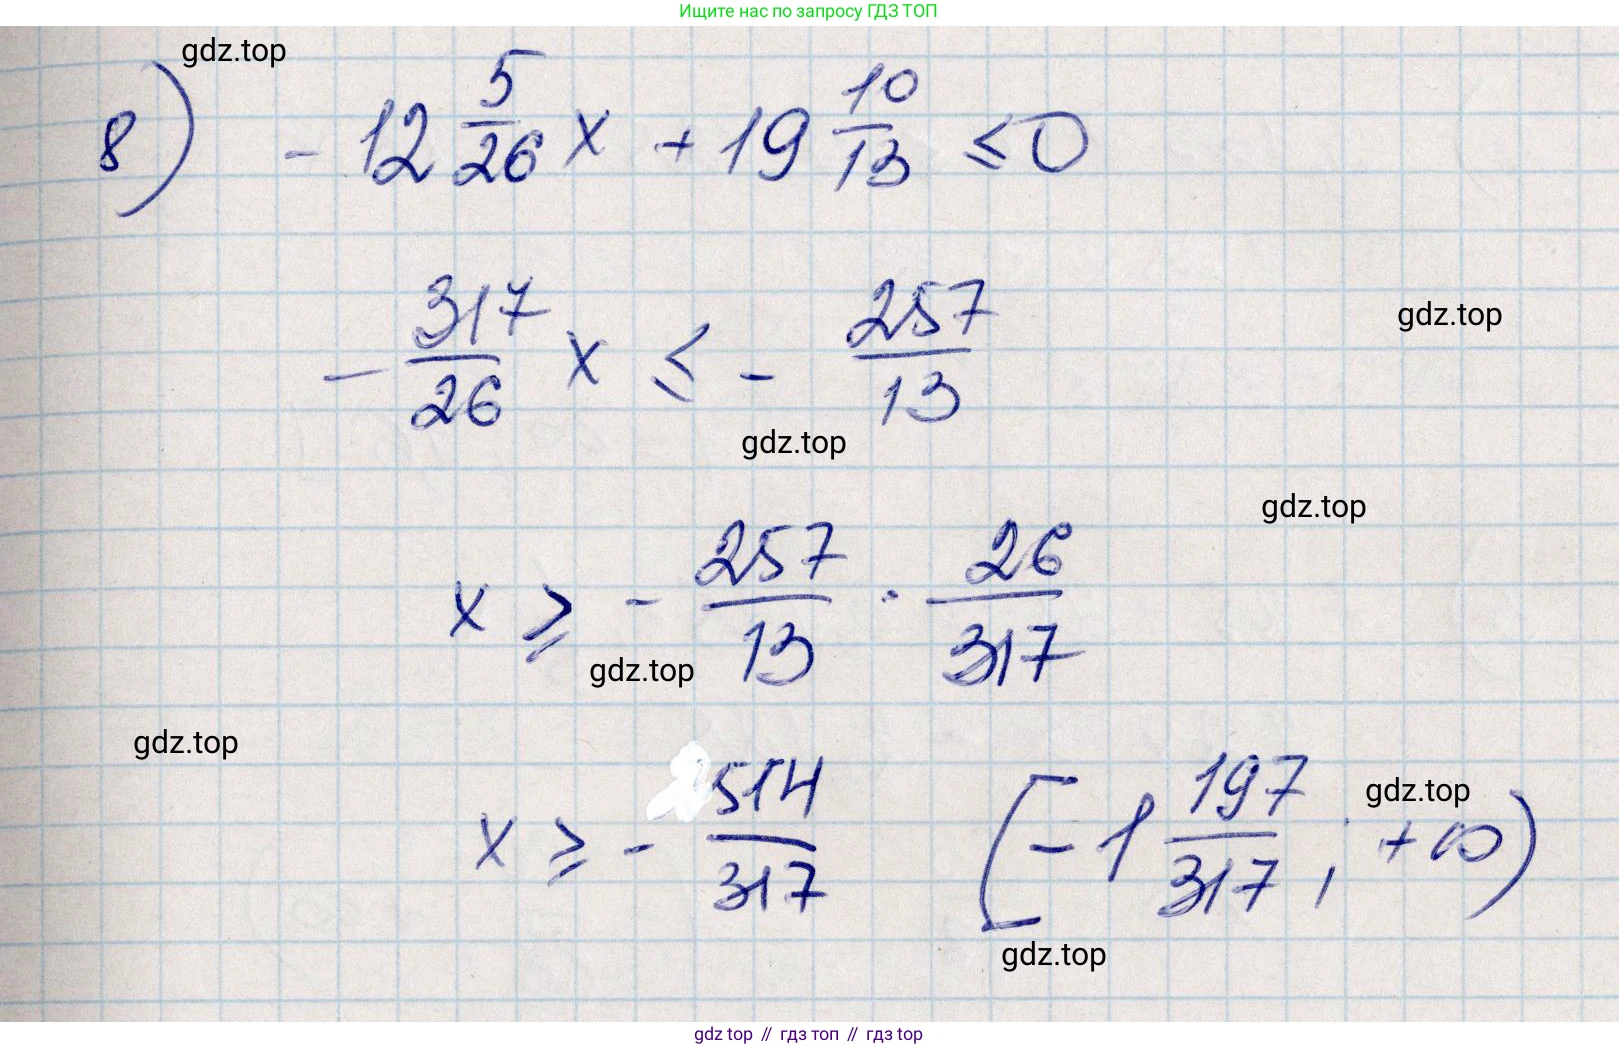 Ищите нас по запросу ГДЗ ТОП
gdz.top
8) - 12 5/26 x + 19 10/13 ≤ 0
- 317/26 x ≤ - 257/13
gdz.top
gdz.top
gdz.top
x ≥ - 257/13 · 26/317
gdz.top
gdz.top
x ≥ - 514/317 [-1 197/317 ; +∞)
gdz.top
gdz.top
gdz top // гдз топ // гдз top